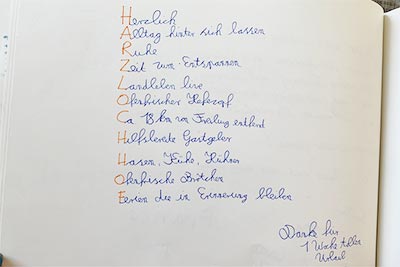 Herzlich
Alltag hinter sich lassen
Ruhe
Zeit zum Entspannen
Landleben live
Ofenfrischer Hefezopf
Ca 18 km von Freiburg entfernt
Hilfsbereite Gastgeber
Hasen, Kühe, Hühner
Ofenfrische Brötchen
Ferien die in Erinnerung bleiben
Danke für
1 Woche tollen
Urlaub